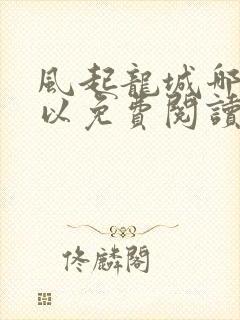 風起龍城哪
以免費閱讀
佟麟閣